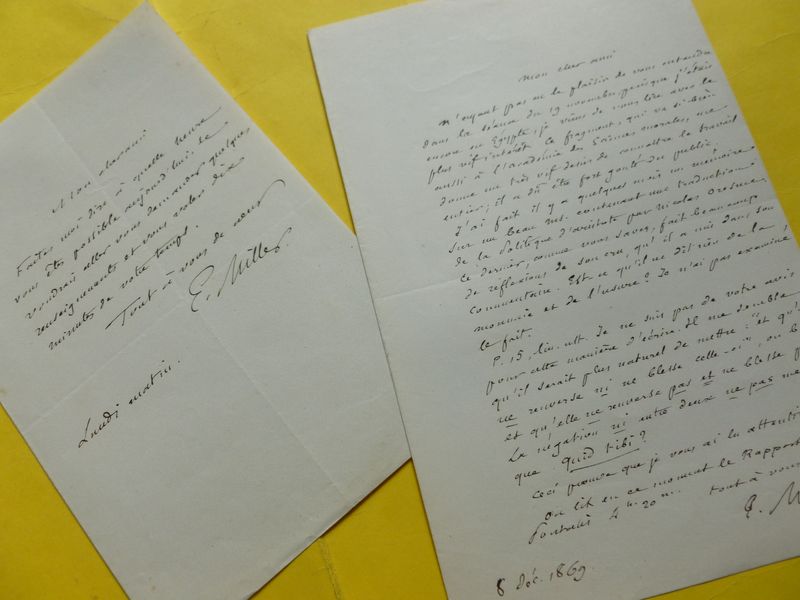 Mon cher ami
Faites moi dire à quelle heure
vous être possible aujourd'hui. Je
voudrais aller vous demander quelques
renseignements et vous voler dix
minutes de votre temps.
Tout à vous de cœur
E. Miller
Lundi matin.
Mon cher ami
N'ayant pas eu le plaisir de vous entendre
dans la séance du 19 novembre, puisque j'étais
encore en Egypte, je viens de vous lire avec le
plus vif intérêt. Ce fragment, qui va si bien
aussi à l'académie des Sciences morales, me
donne un très vif desir de connaître le travail
entier; il a dû être fort goûté du public.
J'ai fait il y a quelques mois un mémoire
sur un beau ms. contenant une traduction
de la Politique d'aristote par Nicolas Oresme.
Ce dernier, comme vous savez, fait beaucoup
de reflexions de son cru, qu'il a mis dans son
commentaire. Est-ce qu'il ne dit rien de la
monnaie et de l'usure? Je n'ai pas examiné
le fait.
P. 15, lin. ult. Je ne suis pas de votre avis
pour cette manière d'écrire. Il me semble
qu'il serait plus naturel de mettre: "et qu'
ne renverse ni ne blesse celle-ci", ou b
et qu'elle ne renverse pas et ne blesse p
La négation ni entre deux ne pas me
que quid tibi?
Ceci prouve que je vous ai lu attenti
On lit en ce moment le Rapport
4 h. 20 m. tout à vous
E. M
8 déc. 1869.